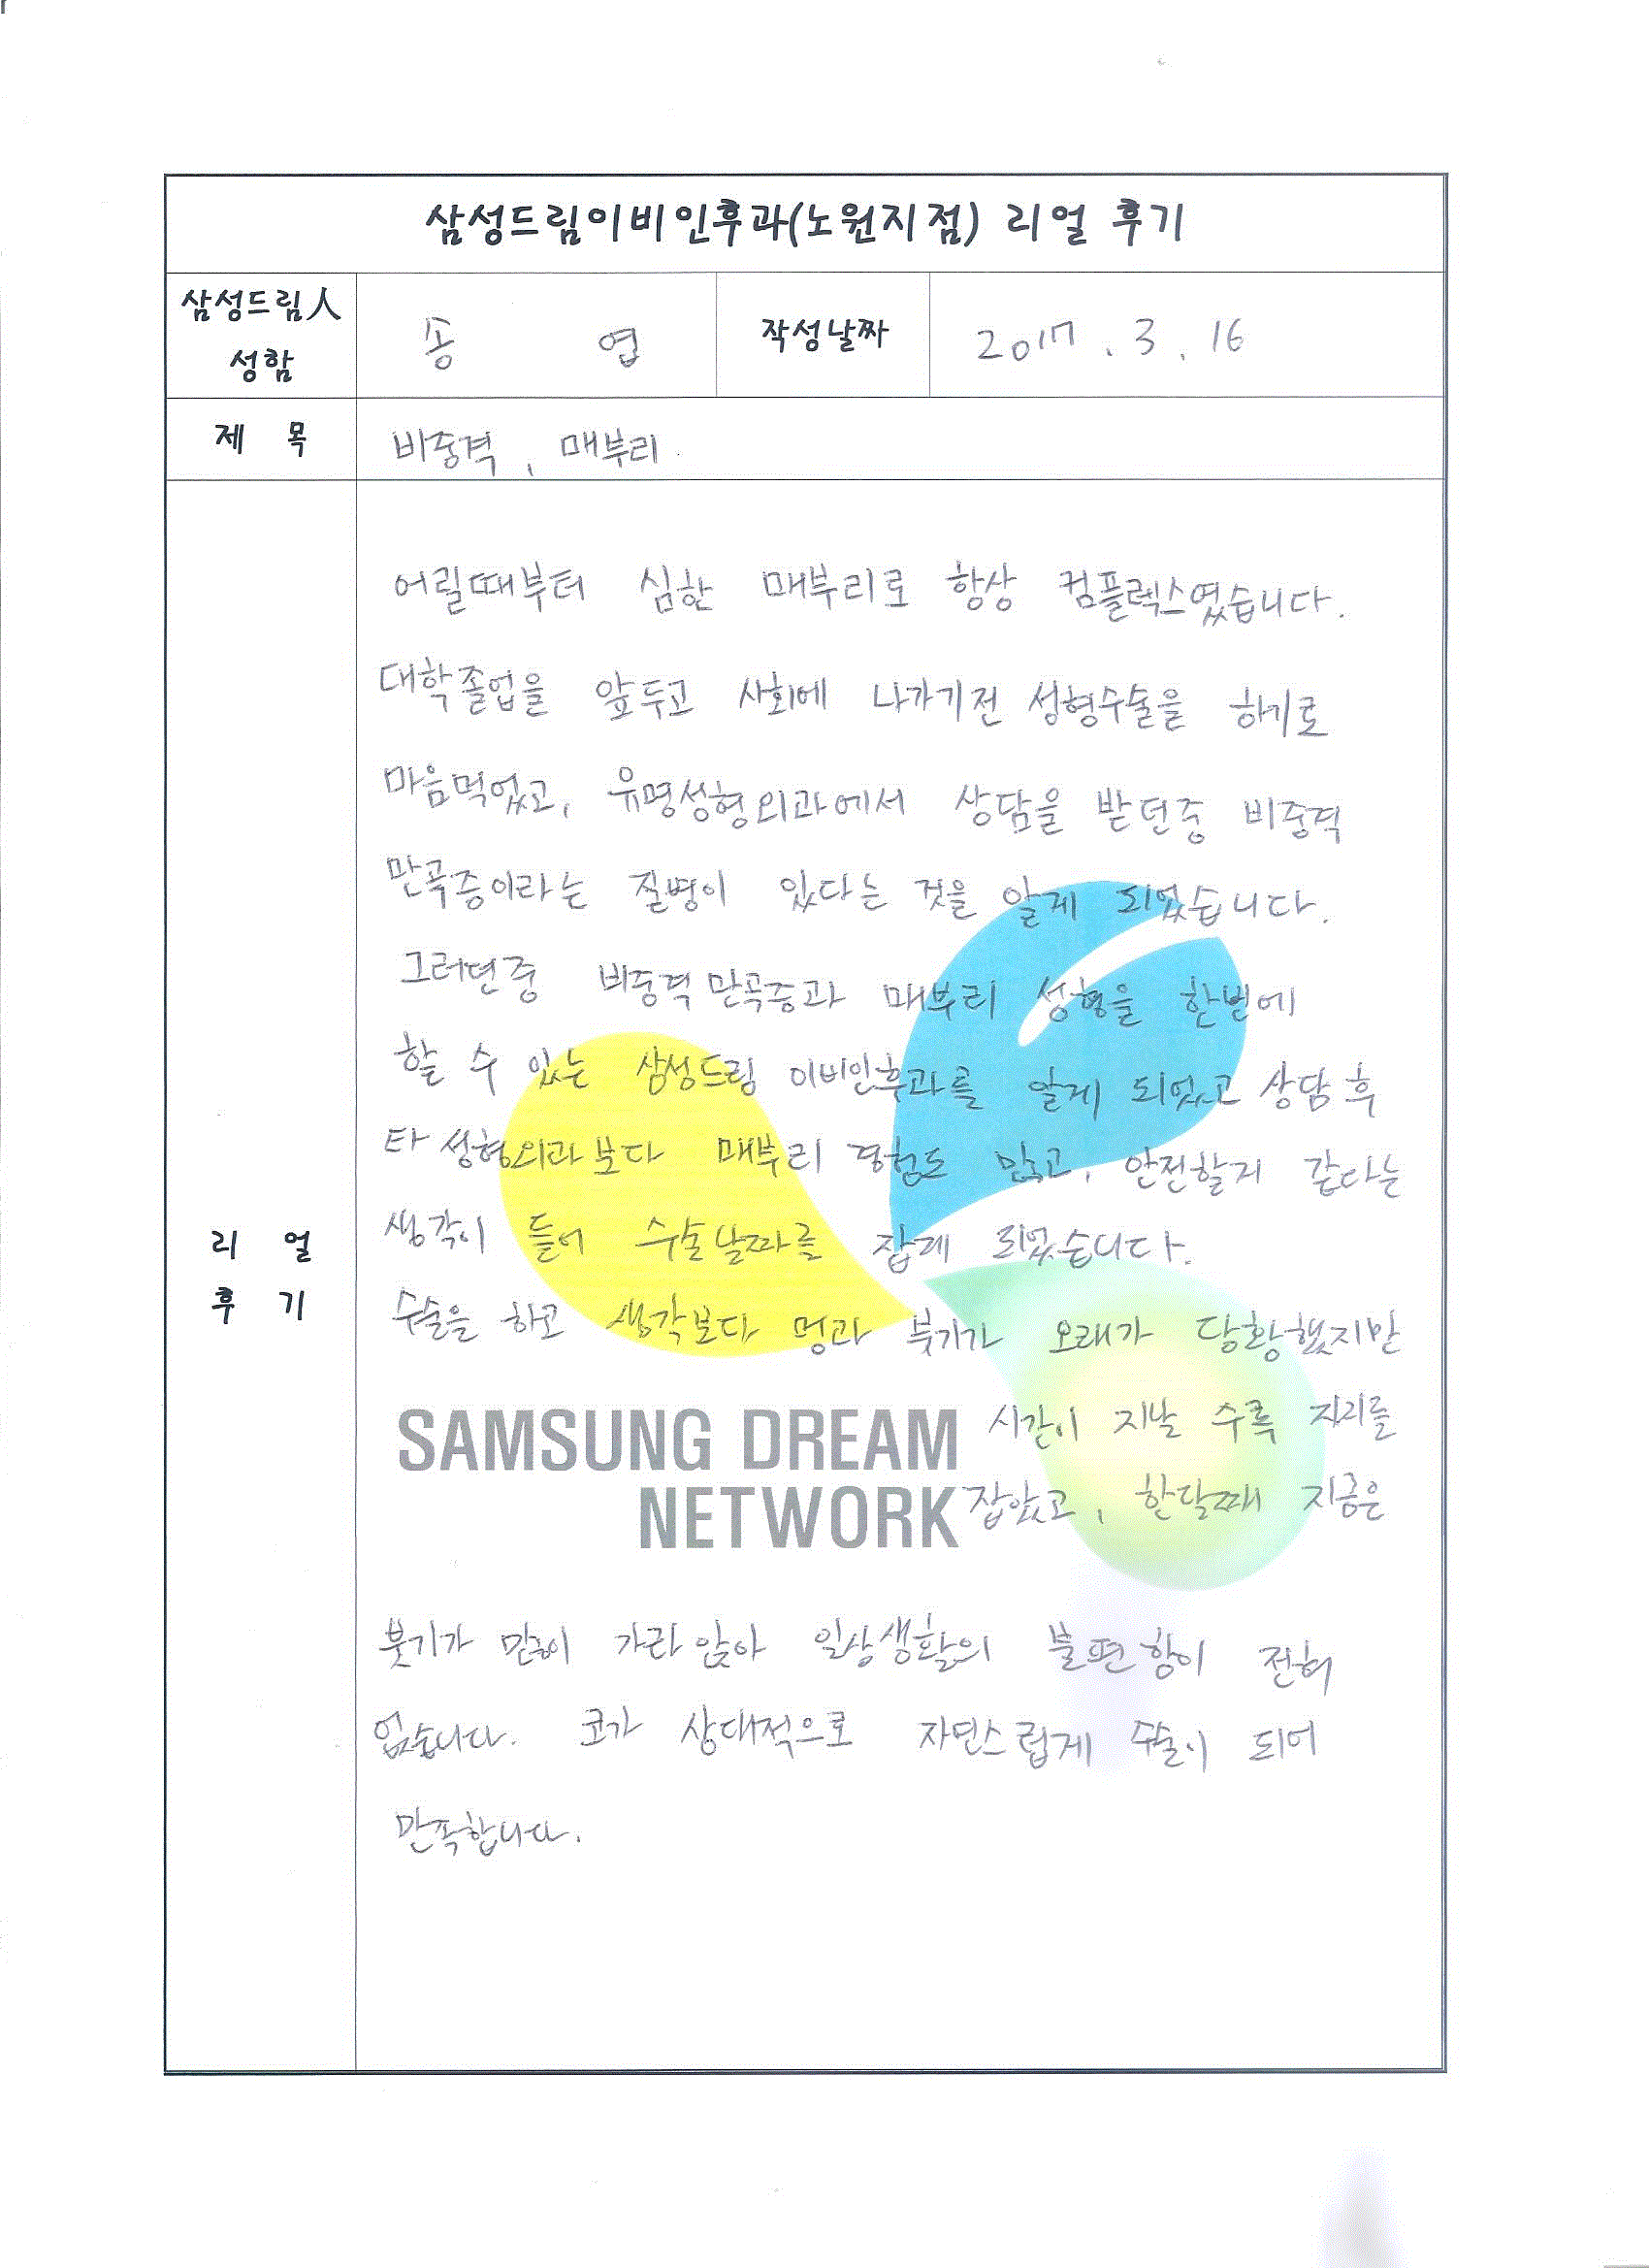 삼성드림이비인후과(노원지점) 리얼 후기
삼성드림人 성함
송 엽
작성날짜
2017. 3. 16
제 목
비중격, 매부리
리 얼 후 기
어릴때부터 심한 매부리로 항상 컴플렉스였습니다.
대학졸업을 앞두고 사회에 나가기전 성형수술을 하기로
마음먹었고, 유명성형외과에서 상담을 받던중 비중격
만곡증이라는 질병이 있다는 것을 알게 되었습니다.
그러던중 비중격만곡증과 매부리 성형을 한번에
할 수 있는 삼성드림 이비인후과를 알게 되었고 상담 후
타 성형외과보다 매부리 경험도 많고, 안전할거 같다는
생각이 들어 수술날짜를 잡게 되었습니다.
수술을 하고 생각보다 멍과 붓기가 오래가 당황했지만
시간이 지날 수록 자리를
SAMSUNG DREAM
잡았고, 한달째 지금은
NETWORK
붓기가 많이 가라 앉아 일상생활의 불편함이 전혀
없습니다. 코가 상대적으로 자연스럽게 수술이 되어
만족합니다.